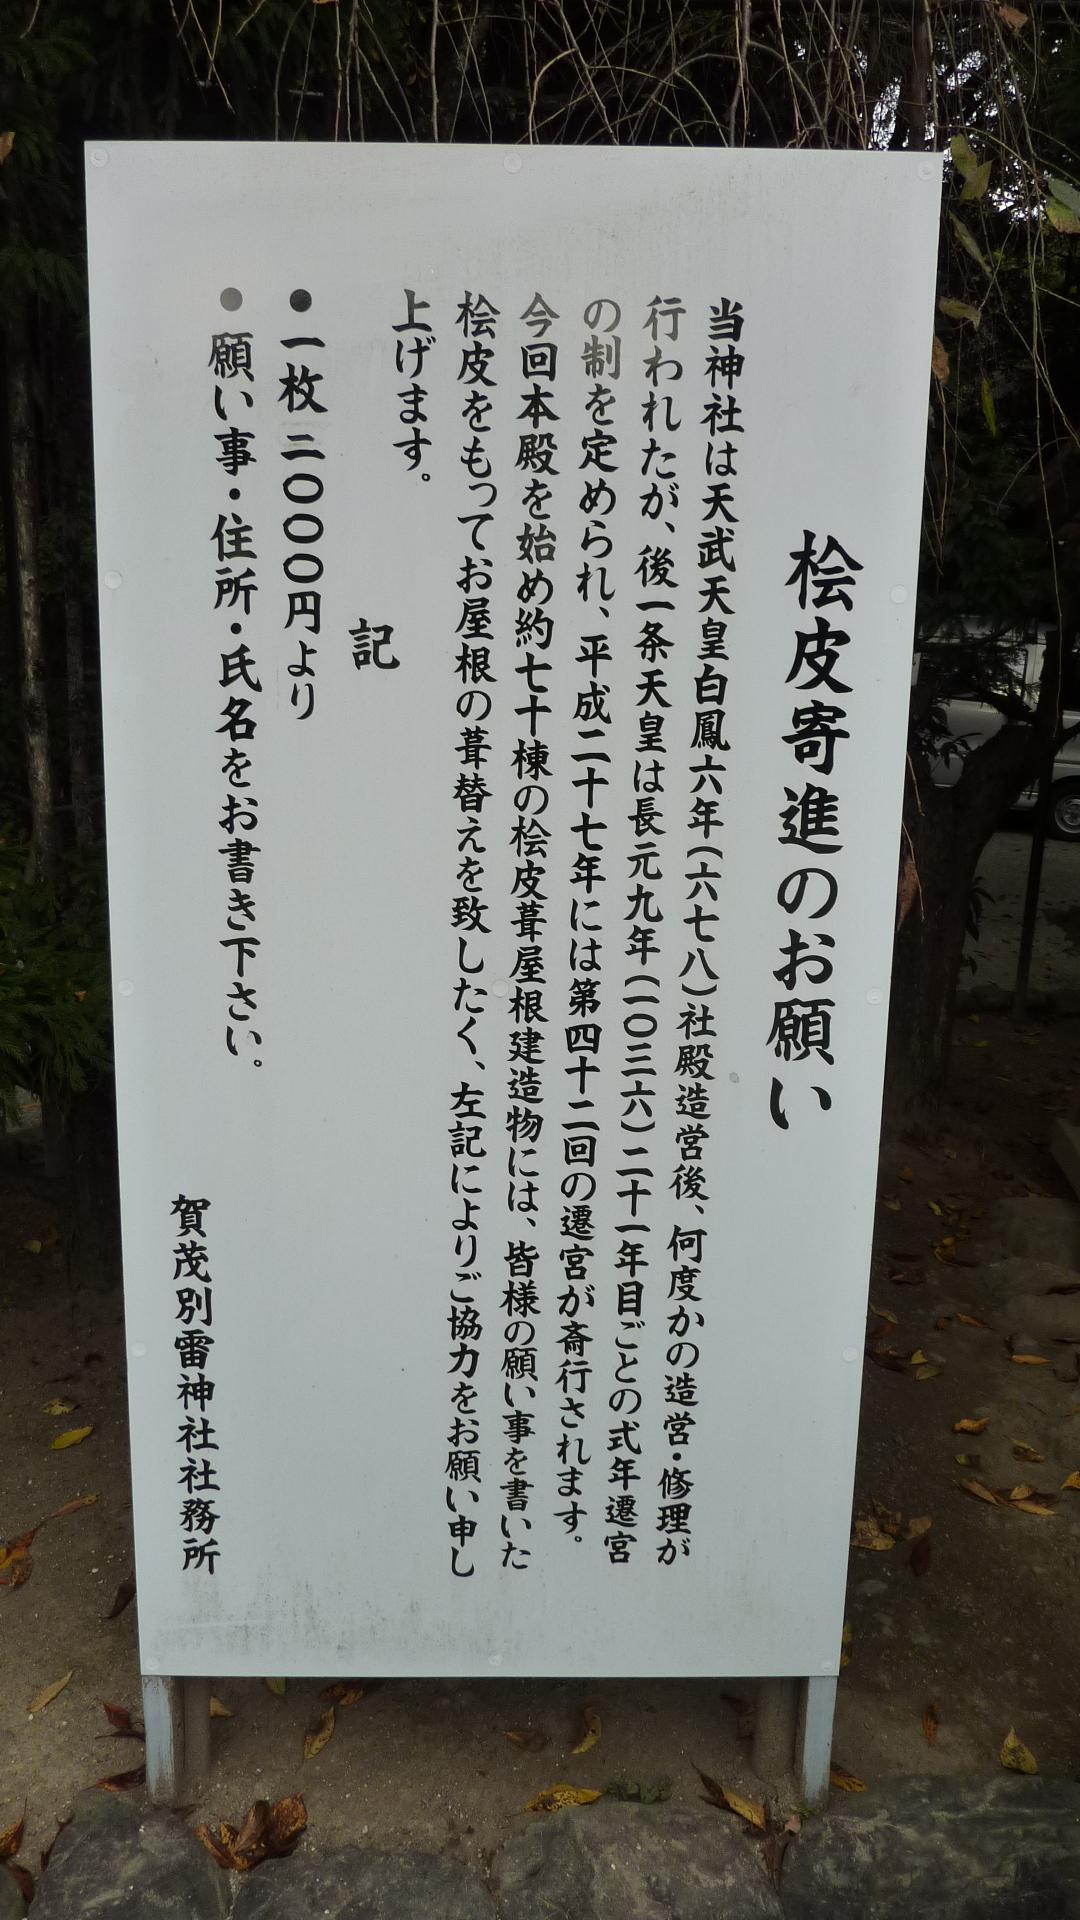 桧皮寄進のお願い
当神社は天武天皇白鳳六年(六七八)社殿造営後、何度かの造営・修理が
行われたが、後一条天皇は長元九年(一〇三六)二十一年目ごとの式年遷宮
の制を定められ、平成二十七年には第四十二回の遷宮が斎行されます。
今回本殿を始め約七十棟の桧皮葺屋根建造物には、皆様の願い事を書いた
桧皮をもってお屋根の葺替えを致したく、左記によりご協力をお願い申し
上げます。
記
●一枚 二〇〇〇円より
●願い事・住所・氏名をお書き下さい。
賀茂別雷神社社務所